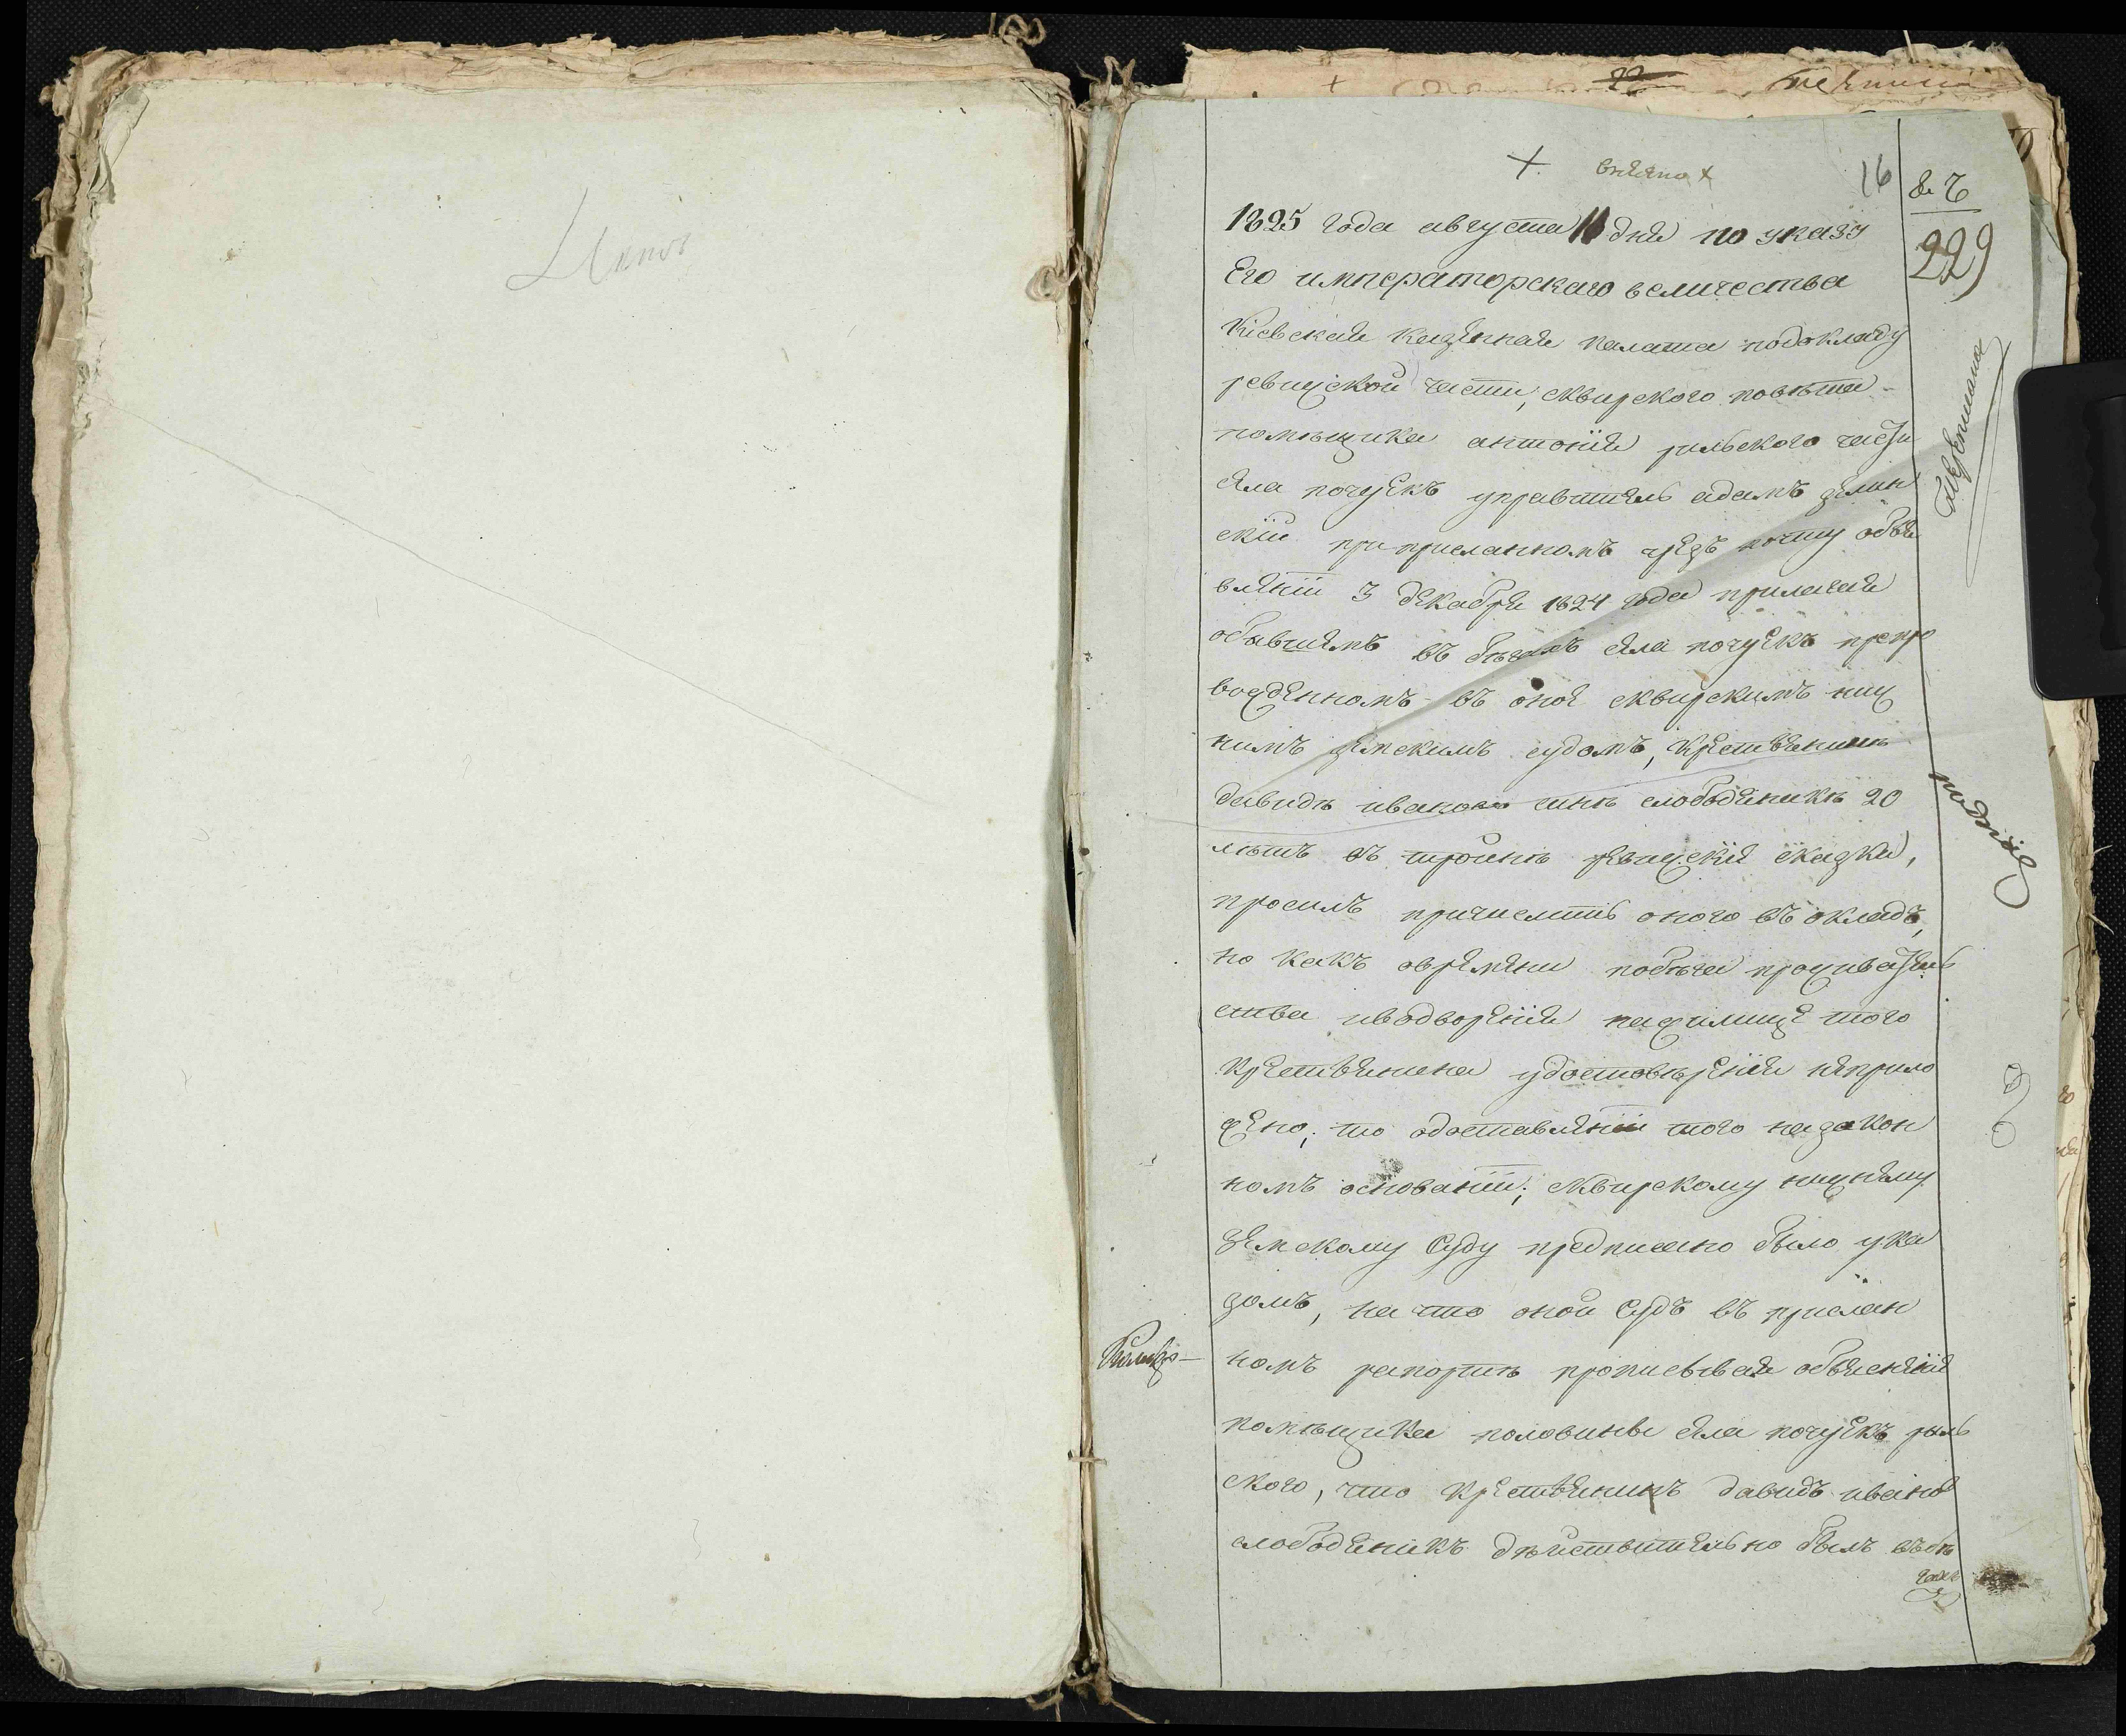 16
229
1825 года августа 11 дня по указу
Его императорскаго величества
Кіевская казенная палата подокладу
ревизской части, сквирского повѣта
помѣщика антонія рильского части
села почуекъ управитель адамъ зелин
скій при присланномъ чрезъ почту объя
вленіи 3 декабря 1824 года прилагая
обывшемъ въ бѣгахъ села почуекъ препро
вожденномъ въ оное сквирскимъ ниж
нимъ земскимъ судомъ, крестьянинѣ
давидѣ иванова синѣ слободяникѣ 20
лѣтъ въ тройнѣ ревизскіе сказки,
просилъ причислить оного въ окладъ,
но какъ овремени побѣга проживатель
ства иводворенія нажилище того
крестьянина удостовѣренія неприло
жено, то одоставленіи того на закон
номъ основаніи, сквирскому нижнему
земскому Суду предписано было ука
зомъ, на что оной Судъ въ прислан
номъ рапортѣ прописывая объясненіе
помѣщика половины села почуекъ риль
ского, что крестьянинъ давидъ иванов
слободяникъ дѣйствительно былъ въбѣ
гахъ